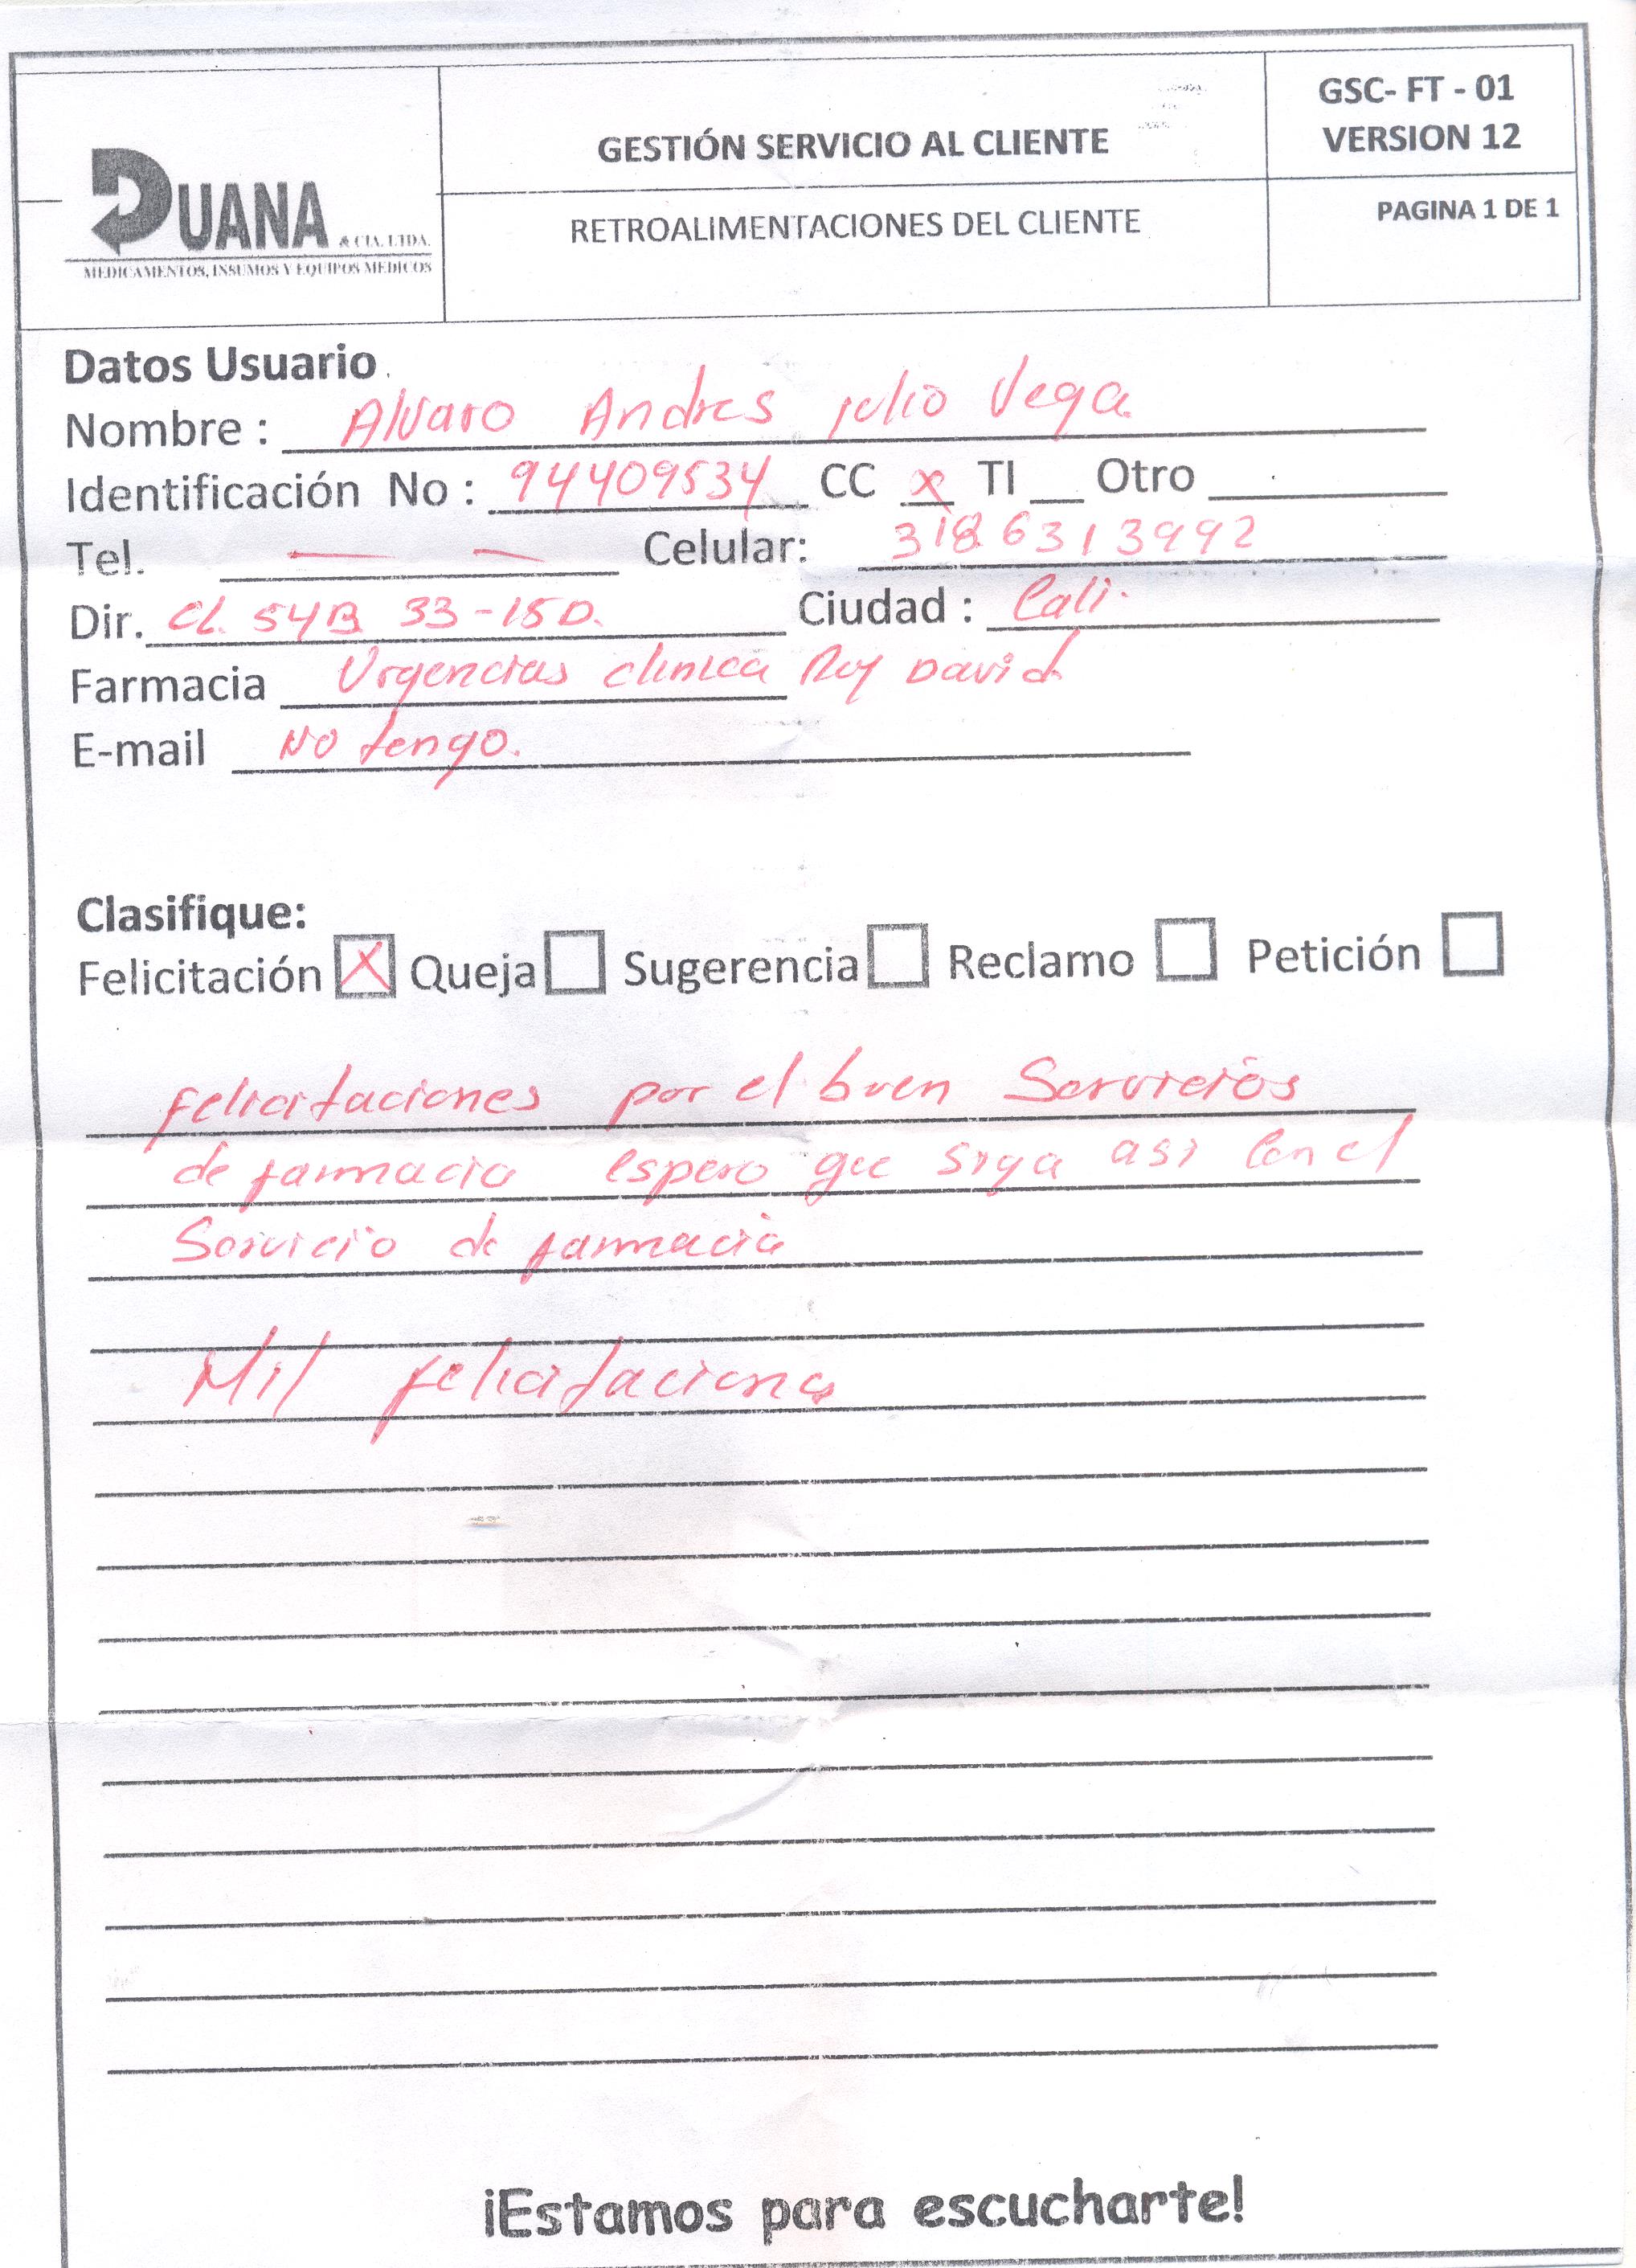 GESTIÓN SERVICIO AL CLIENTE
GSC- FT - 01
VERSION 12
DUANA & CIA. LTDA.
MEDICAMENTOS, INSUMOS Y EQUIPOS MEDICOS
RETROALIMENTACIONES DEL CLIENTE
PAGINA 1 DE 1
Datos Usuario
Nombre : Alvaro Andres julio Vega
Identificación No : 94409534 CC x TI __ Otro
Tel. — — Celular: 3186313992
Dir. CL. 54B 33-15D. Ciudad : Cali.
Farmacia Urgencias clinica Rey David
E-mail No tengo.
Clasifique:
Felicitación X Queja Sugerencia Reclamo Petición
felicitaciones por el buen Servicios
de farmacia espero que siga asi Con el
Servicio de farmacia
Mil felicitaciones
¡Estamos para escucharte!